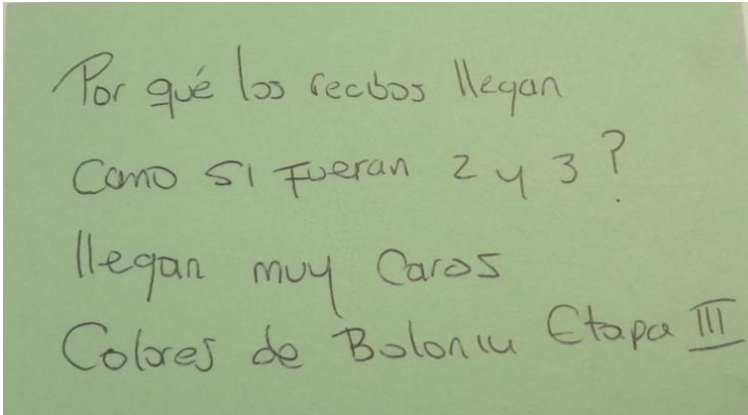 Por qué los recibos llegan
Como si fueran 2 y 3?
llegan muy Caros
Colores de Bolonia Etapa III